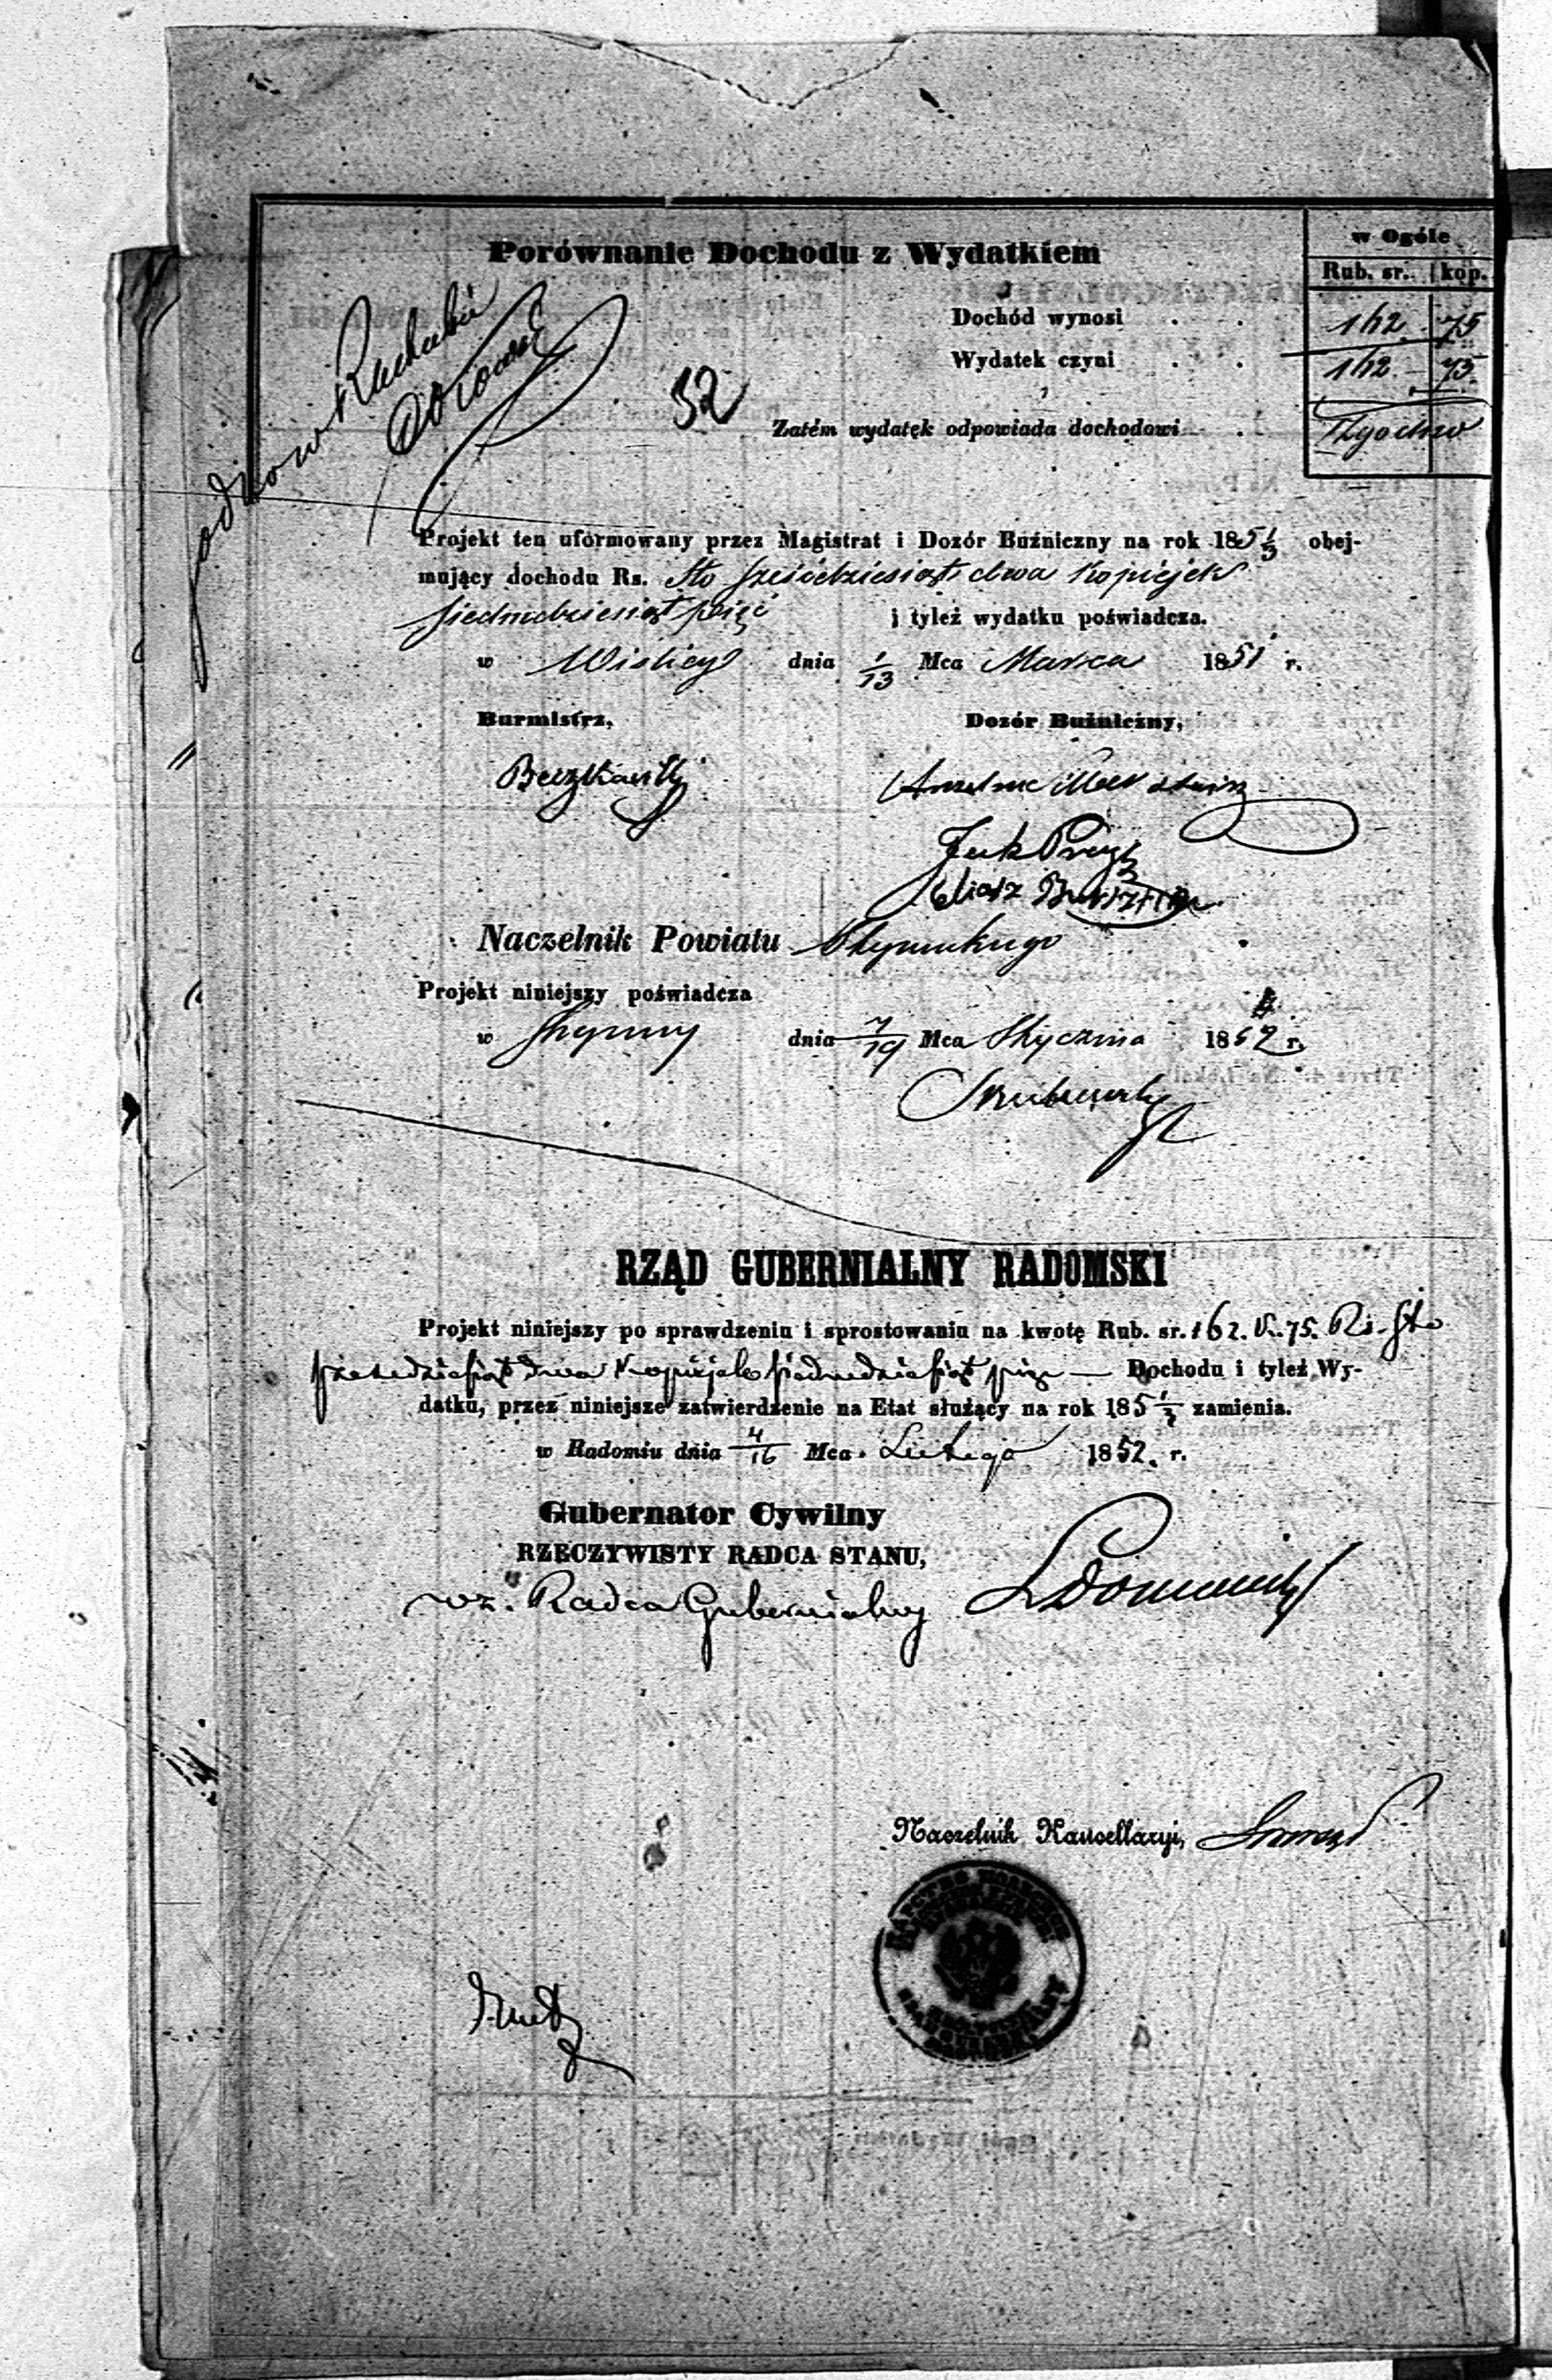 w Ogóle
Porównanie Dochodu z Wydatkiem
Rub. sr. kop.
Dochód wynosi . . 162 75
Wydatek czyni . . 162 75
32
Zatém wydatek odpowiada dochodowi .
Projekt ten uformowany przez Magistrat i Dozór Bużniczny na rok 1851/3 obej-
mujący dochodu Rs. Sto sześćdziesiąt dwa kopiejek
siedmdziesiąt pięć i tyleż wydatku poświadcza.
w Wislicy dnia 1/13 Mca Marca 1851 r.
Burmistrz, Dozór Bużniczny,
Naczelnik Powiatu
Projekt niniejszy poświadcza
w dnia 7/19 Mca Stycznia 1852 r.
RZĄD GUBERNIALNY RADOMSKI
Projekt niniejszy po sprawdzeniu i sprostowaniu na kwotę Rub. sr. 162. k. 75. Rs. Sto
sześćdziesiąt dwa kopiejek siedmdziesiąt pięć — Dochodu i tyleż Wy-
datku, przez niniejsze zatwierdzenie na Etat służący na rok 1851/3 zamienia.
w Radomiu dnia 4/16 Mca Lutego 1852. r.
Gubernator Cywilny
RZECZYWISTY RADCA STANU,
wz. Radca Gubernialny
Naczelnik Kancellaryi,